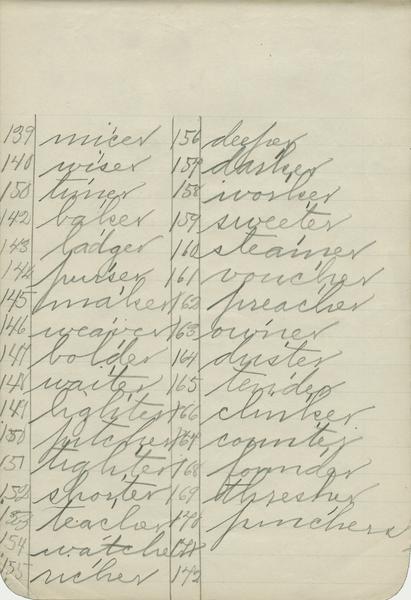 139 nicer
140 wiser
150 timer
142 baker
143 ladger
144 purser
145 maker
146 weaver
147 bolder
148 waiter
149 lighter
150 pitcher
151 tighter
152 shorter
153 teacher
154 watcher
155 richer
156 deeper
159 darker
158 worker
159 sweeter
160 steamer
161 voucher
162 preacher
163 owner
164 duster
165 tender
166 clinker
167 counter
168 founder
169 thresher
170 pinchers
171
172